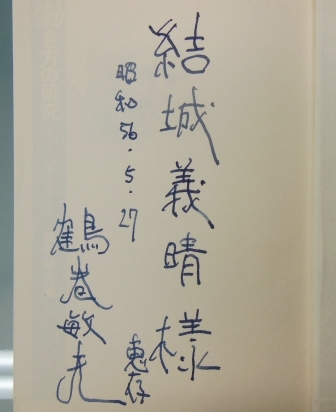 結城義晴様
恵存
昭和56.5.27
鶴巻敏夫